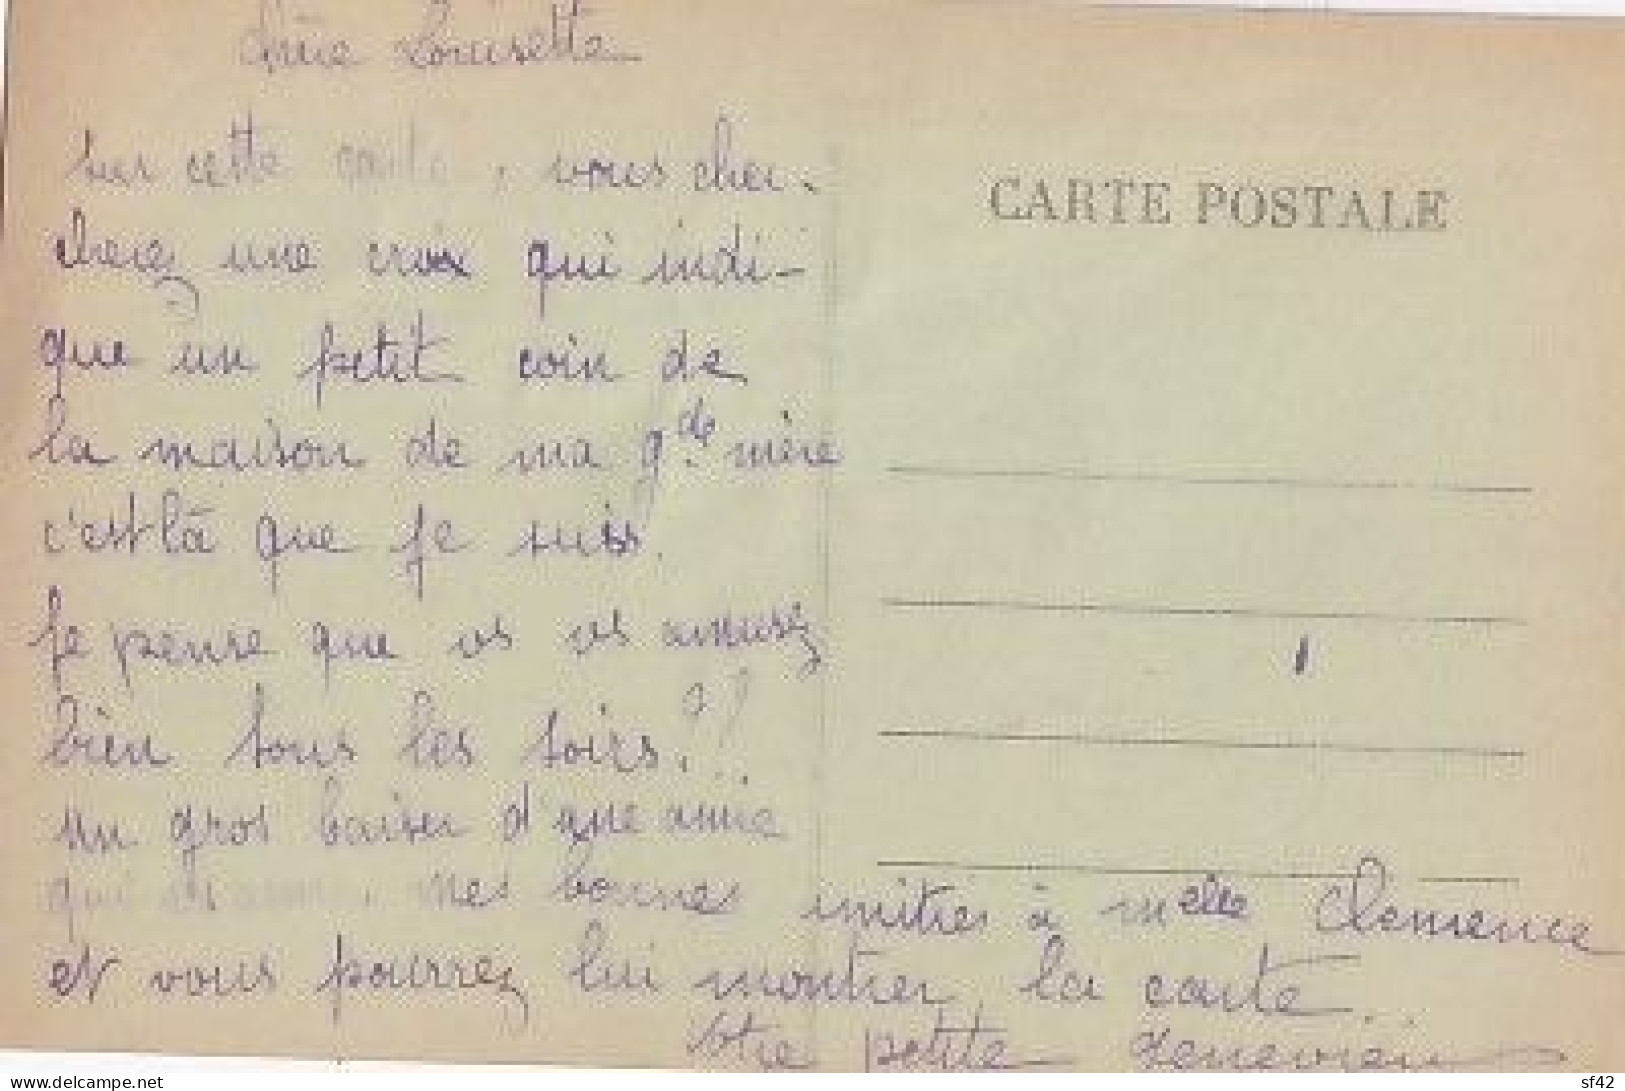 Amie Louisette
sur cette carte, vous cher-
cherez une croix qui indi-
que un petit coin de
la maison de ma gde mère
c'est là que je suis.
Je pense que vs vs amusez
bien tous les soirs.?!
un gros baiser d'une amie
qui vs aime. Mes bonnes amitiés à Melle Clemence
et vous pourrez lui montrer la carte.
Votre petite Genevieve
CARTE POSTALE
www.delcampe.net
sf42